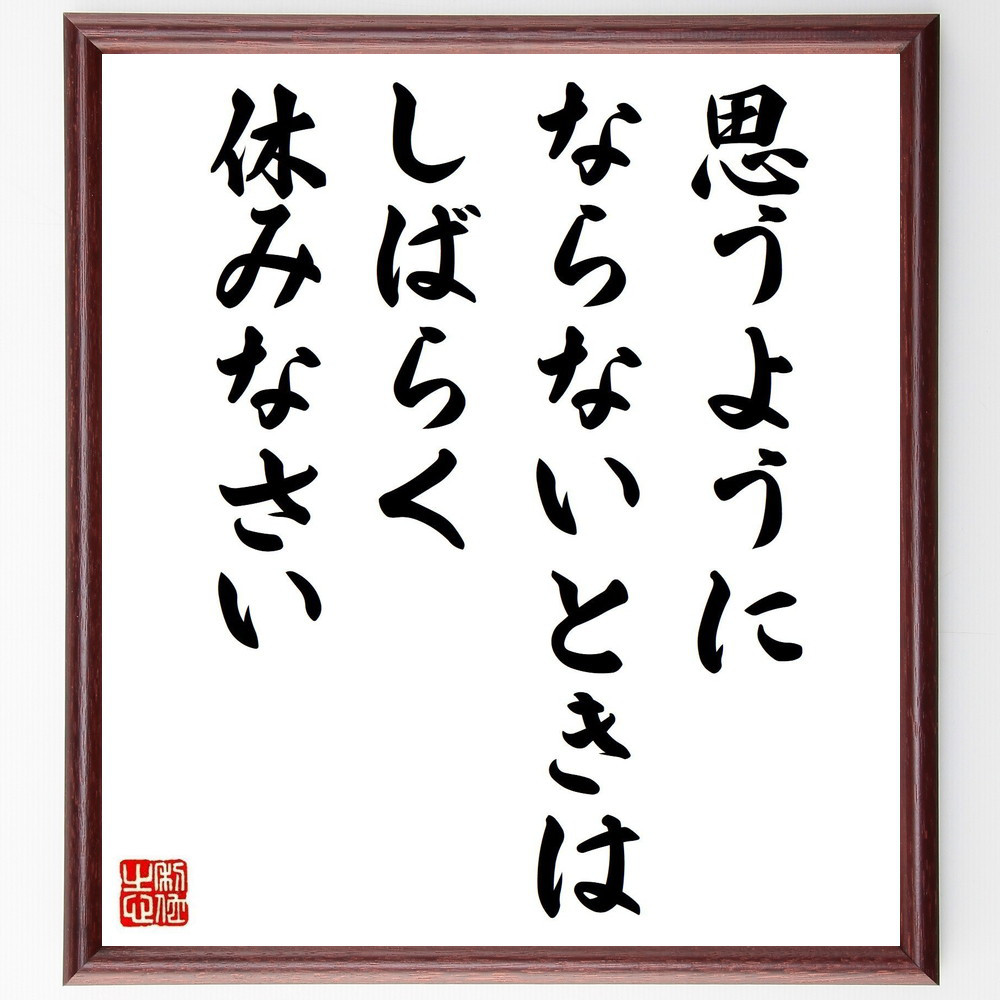 思うように
ならないときは
しばらく
休みなさい